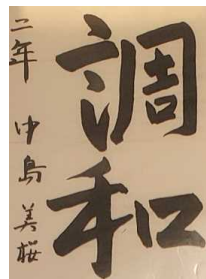 調和
二年 中島美桜